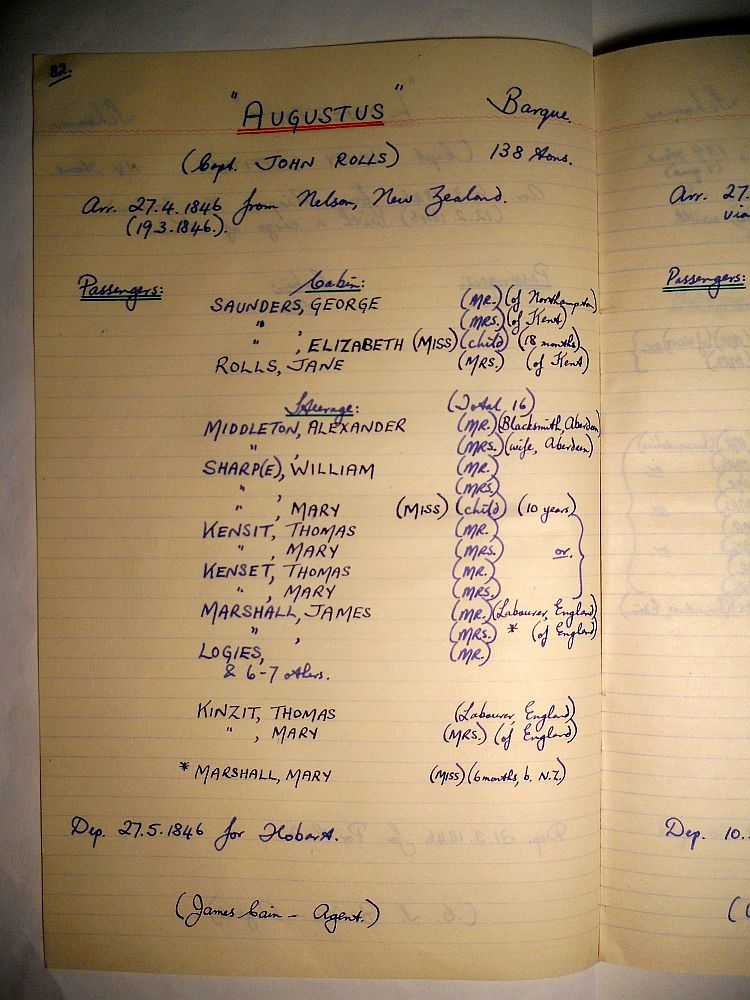 82.
"AUGUSTUS" Barque.
(Capt. JOHN ROLLS) 138 tons.
Arr. 27.4.1846 from Nelson, New Zealand.
(19.3.1846.).
Passengers: Cabin:
SAUNDERS, GEORGE (MR.) (of Northampton)
" , (MRS.) (of Kent)
" , ELIZABETH (MISS) (child) (18 months)
ROLLS, JANE (MRS.) (of Kent)
Steerage: (Total 16)
MIDDLETON, ALEXANDER (MR.) (Blacksmith, Aberdeen)
" , (MRS.) (wife, Aberdeen)
SHARP(E), WILLIAM (MR.)
" , (MRS.)
" , MARY (MISS) (child) (10 years)
KENSIT, THOMAS (MR.)
" , MARY (MRS.) or.
KENSET, THOMAS (MR.)
" , MARY (MRS.)
MARSHALL, JAMES (MR.) (Labourer, England)
" , (MRS.) * (of England)
LOGIES, (MR.)
& 6-7 others.
KINZIT, THOMAS (Labourer, England)
" , MARY (MRS.) (of England)
* MARSHALL, MARY (MISS) (6 months, b. N.Z.)
Dep. 27.5.1846 for Hobart.
(James Cain - Agent.)
Arr. 27.
via
Passengers:
Dep. 10.
(